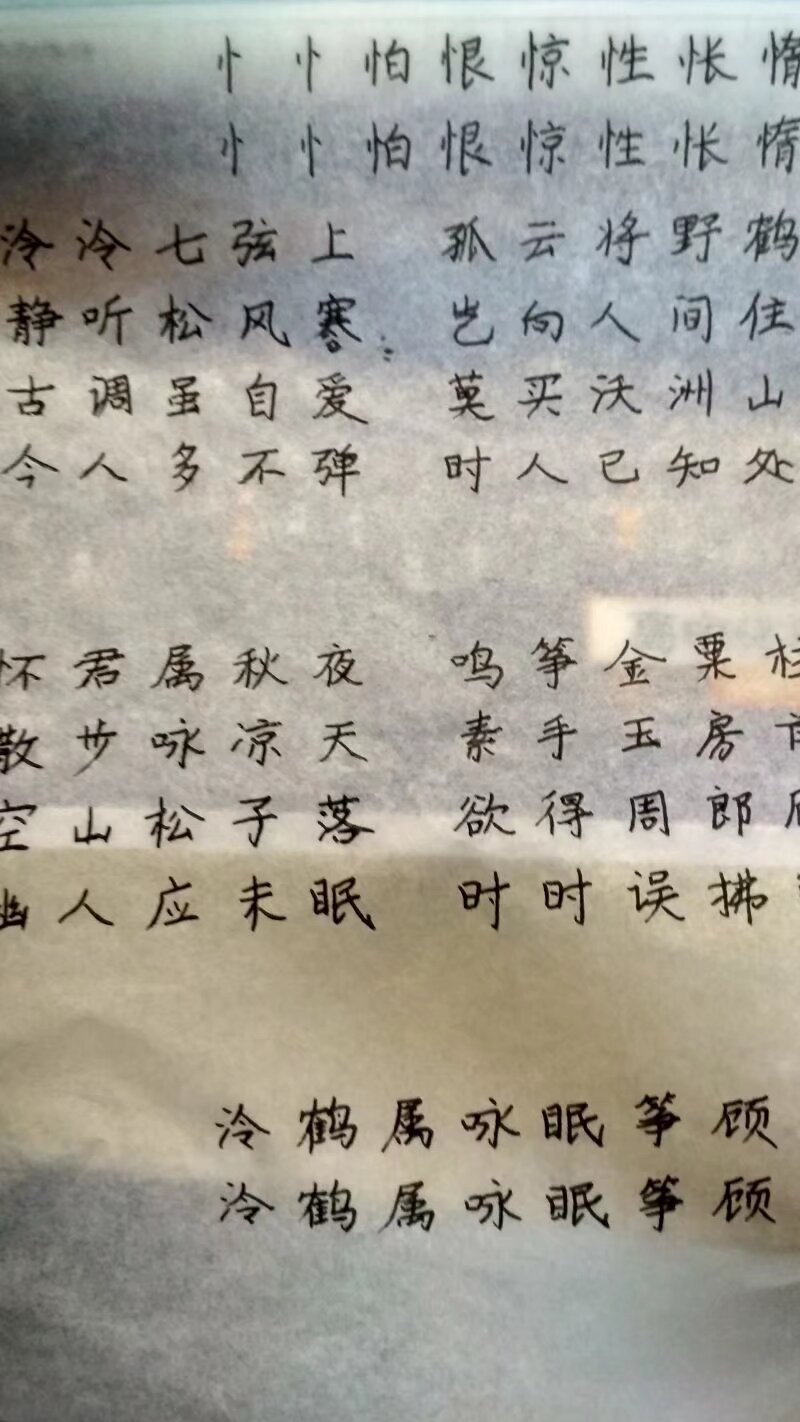 忄 忄 怕 恨 惊 性 怅 惰
忄 忄 怕 恨 惊 性 怅 惰
泠 泠 七 弦 上 孤 云 将 野 鹤
静 听 松 风 寒 岂 向 人 间 住
古 调 虽 自 爱 莫 买 沃 洲 山
今 人 多 不 弹 时 人 已 知 处
怀 君 属 秋 夜 鸣 筝 金 粟 柱
散 步 咏 凉 天 素 手 玉 房
空 山 松 子 落 欲 得 周 郎
幽 人 应 未 眠 时 时 误 拂
泠 鹤 属 咏 眠 筝 顾
泠 鹤 属 咏 眠 筝 顾